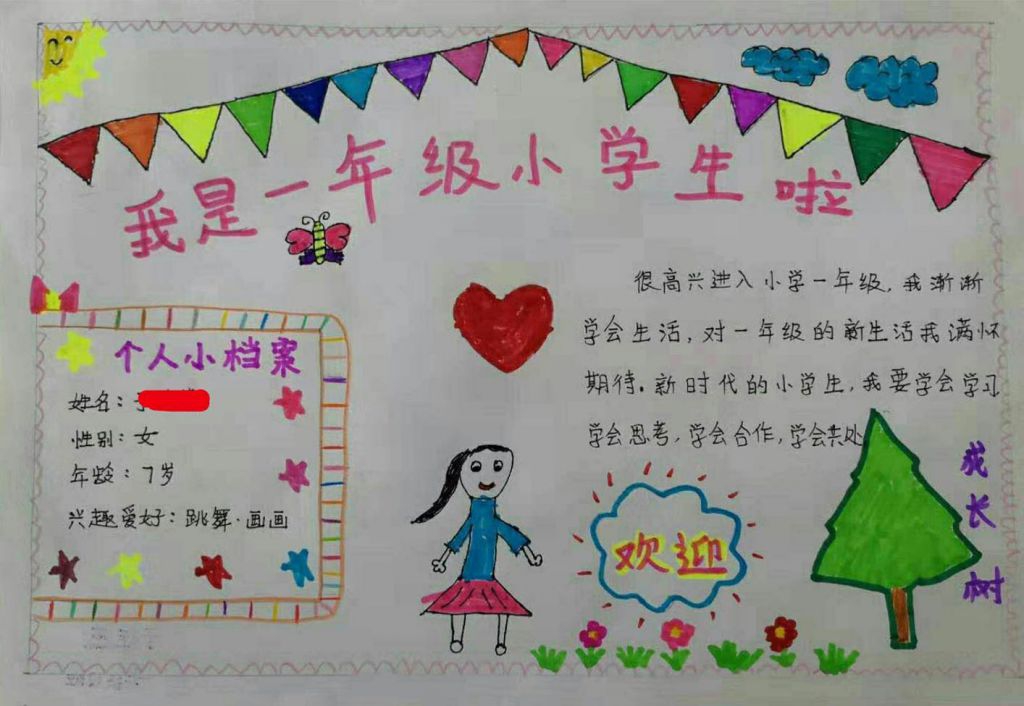 我是一年级小学生啦
个人小档案
姓名：
性别：女
年龄：7岁
兴趣爱好：跳舞·画画
很高兴进入小学一年级，我渐渐
学会生活，对一年级的新生活我满怀
期待。新时代的小学生，我要学会学习
学会思考，学会合作，学会共处
欢迎
成长树